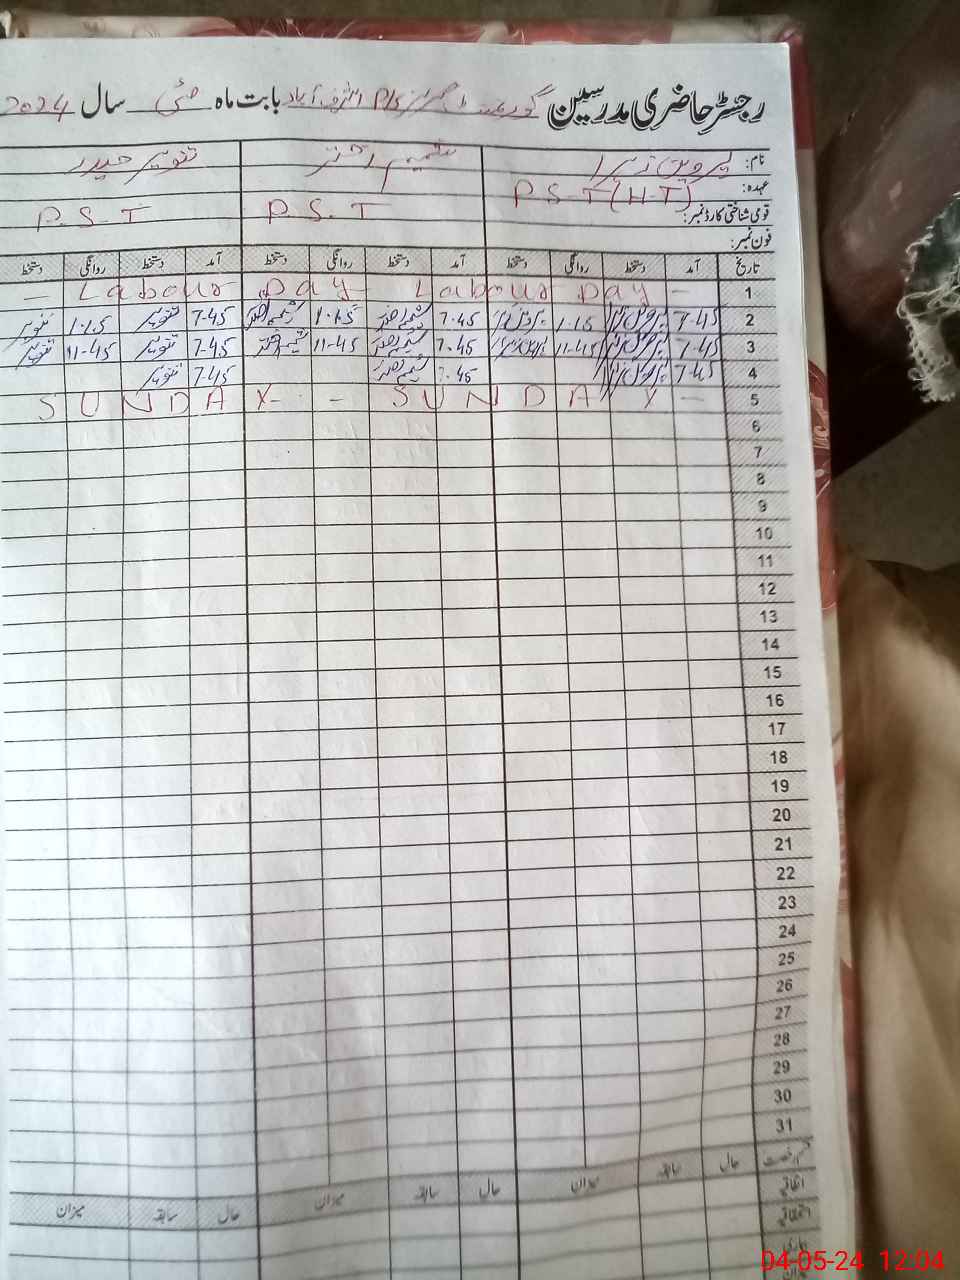 رجسٹر حاضری مدرسین گورنمنٹ P/S اشرف آباد بابت ماہ مئی سال 2024
نام: پروین زہرا شمیم اختر تنویر حیدر
عہدہ: P.S.T (H.T) P.S.T P.S.T
قومی شناختی کارڈ نمبر:
فون نمبر:
تاریخ آمد دستخط روانگی دستخط آمد دستخط روانگی دستخط آمد دستخط روانگی دستخط
1 - Labour Day - Labour Day -
2 7-45 پروین زہرا 1-15 پروین زہرا 7.45 شمیم اختر 1.15 شمیم اختر 7-45 تنویر 1-15 تنویر
3 7-45 پروین زہرا 11-45 پروین زہرا 7.45 شمیم اختر 11-45 شمیم اختر 7-45 تنویر 11-45 تنویر
4 7-45 پروین زہرا 7.45 شمیم اختر 7-45 تنویر
5 S U N D A Y - - S U N D A Y -
6
7
8
9
10
11
12
13
14
15
16
17
18
19
20
21
22
23
24
25
26
27
28
29
30
31
قسم رخصت حال سابقہ میزان حال سابقہ میزان حال سابقہ میزان
اتفاقیہ
استحقاقیہ
بیماری
میزان
04-05-24 12:04